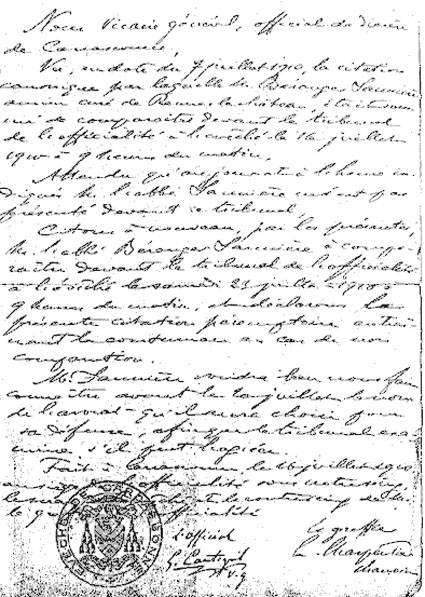 Nous Vicaire général, official du diocèse
de Carcassonne,
Vu, en date du 7 juillet 1910, la citation
canonique par laquelle M. Bérenger Saunière
ancien curé de Rennes-le-château,
de comparaître devant le tribunal
de l'officialité à l'évêché le 16 juillet
1910 à 9 heures du matin,
Attendu qu'au jour et à l'heure in
diqués M. l'abbé Saunière ne s'est pas
présenté devant ce tribunal,
Citons à nouveau, par les présentes,
M. l'abbé Bérenger Saunière à compa
raître devant le tribunal de l'officialité
à l'évêché le samedi 23 juillet 1910 à
9 heures du matin, et déclarons la
présente citation péremptoire entraî
nant la contumace en cas de non
comparution.
M. Saunière voudra bien nous faire
connaître avant le juillet le nom
de l'avocat qu'il aura choisi pour
sa défense afin que le tribunal exa
mine s'il peut l'agréer.
Fait à Carcassonne, le 16 juillet 1910
l'officialité sous notre seing,
le contreseing
officialité
l'official
le greffier
G. Cantegril
v. g.
L. Charpentier
chanoine
EVECHE DE CARCASSONNE